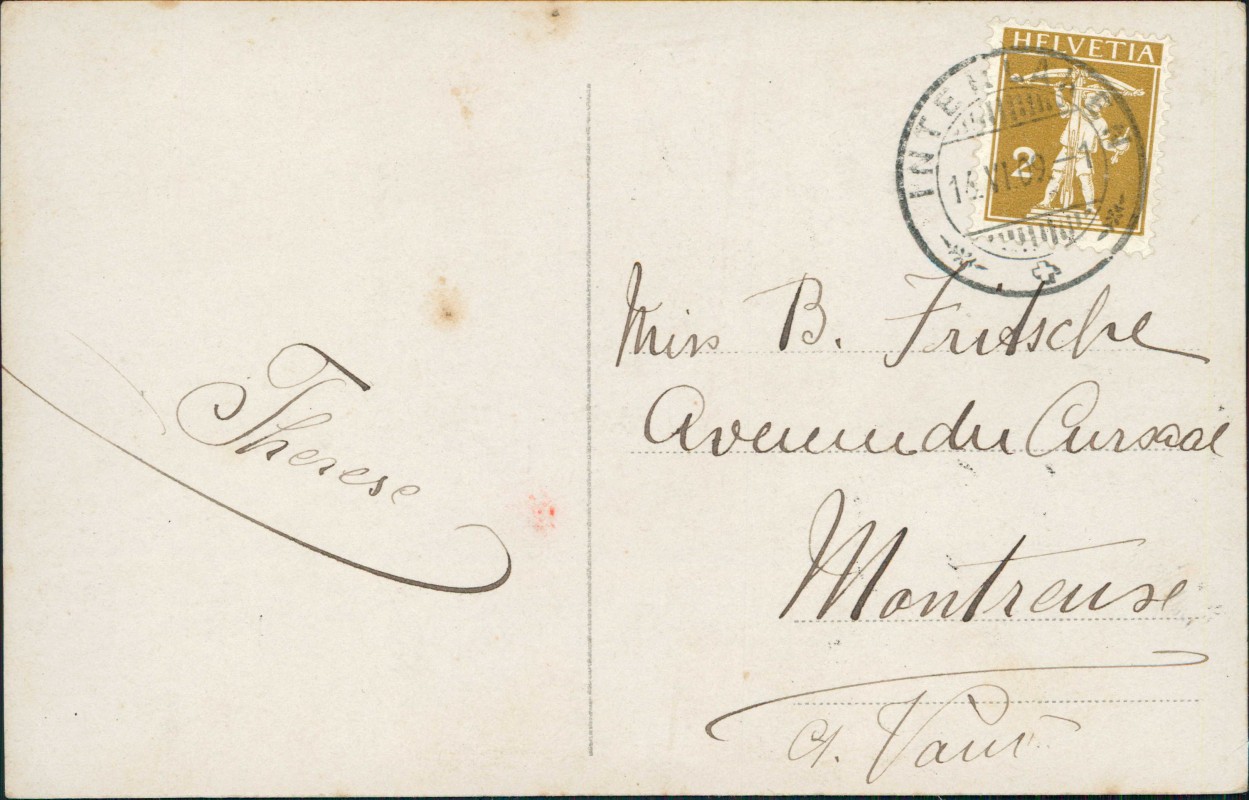 HELVETIA
2
INTERLAKEN
Therese
Miss B. Fritsche
Avenue du Cursaal
Montreuse
ct. Vaud